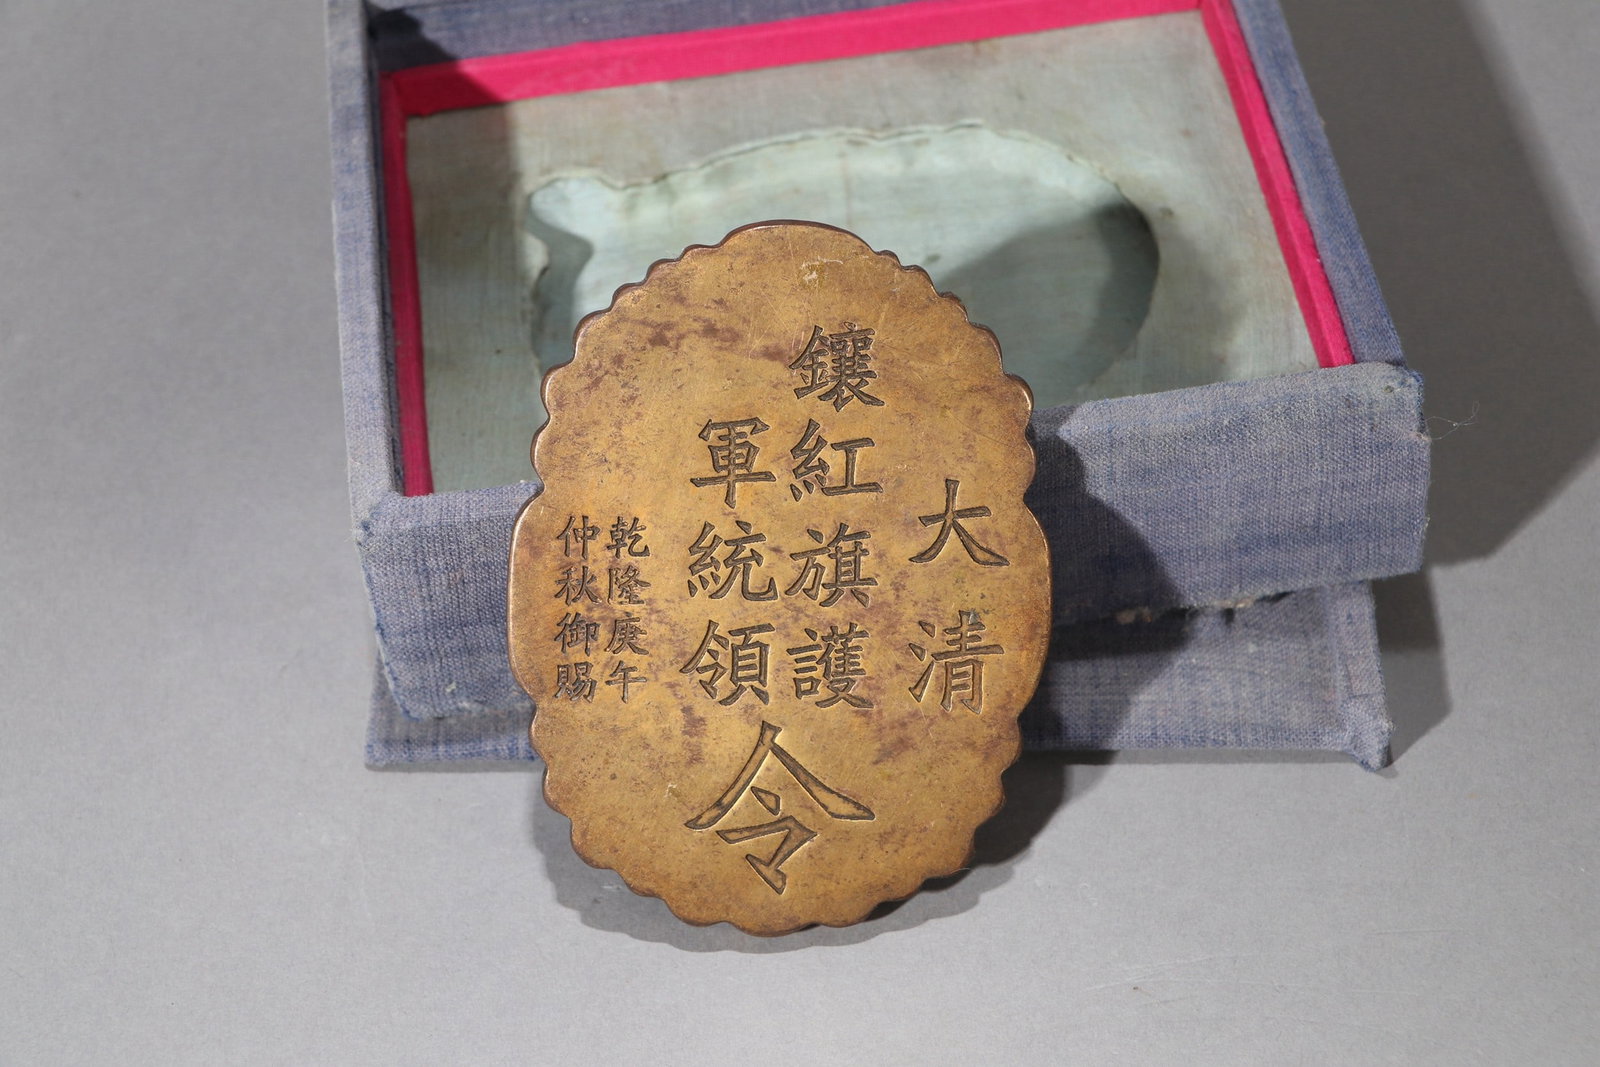 大清
鑲紅旗護
軍統領
令
乾隆庚午
仲秋御賜